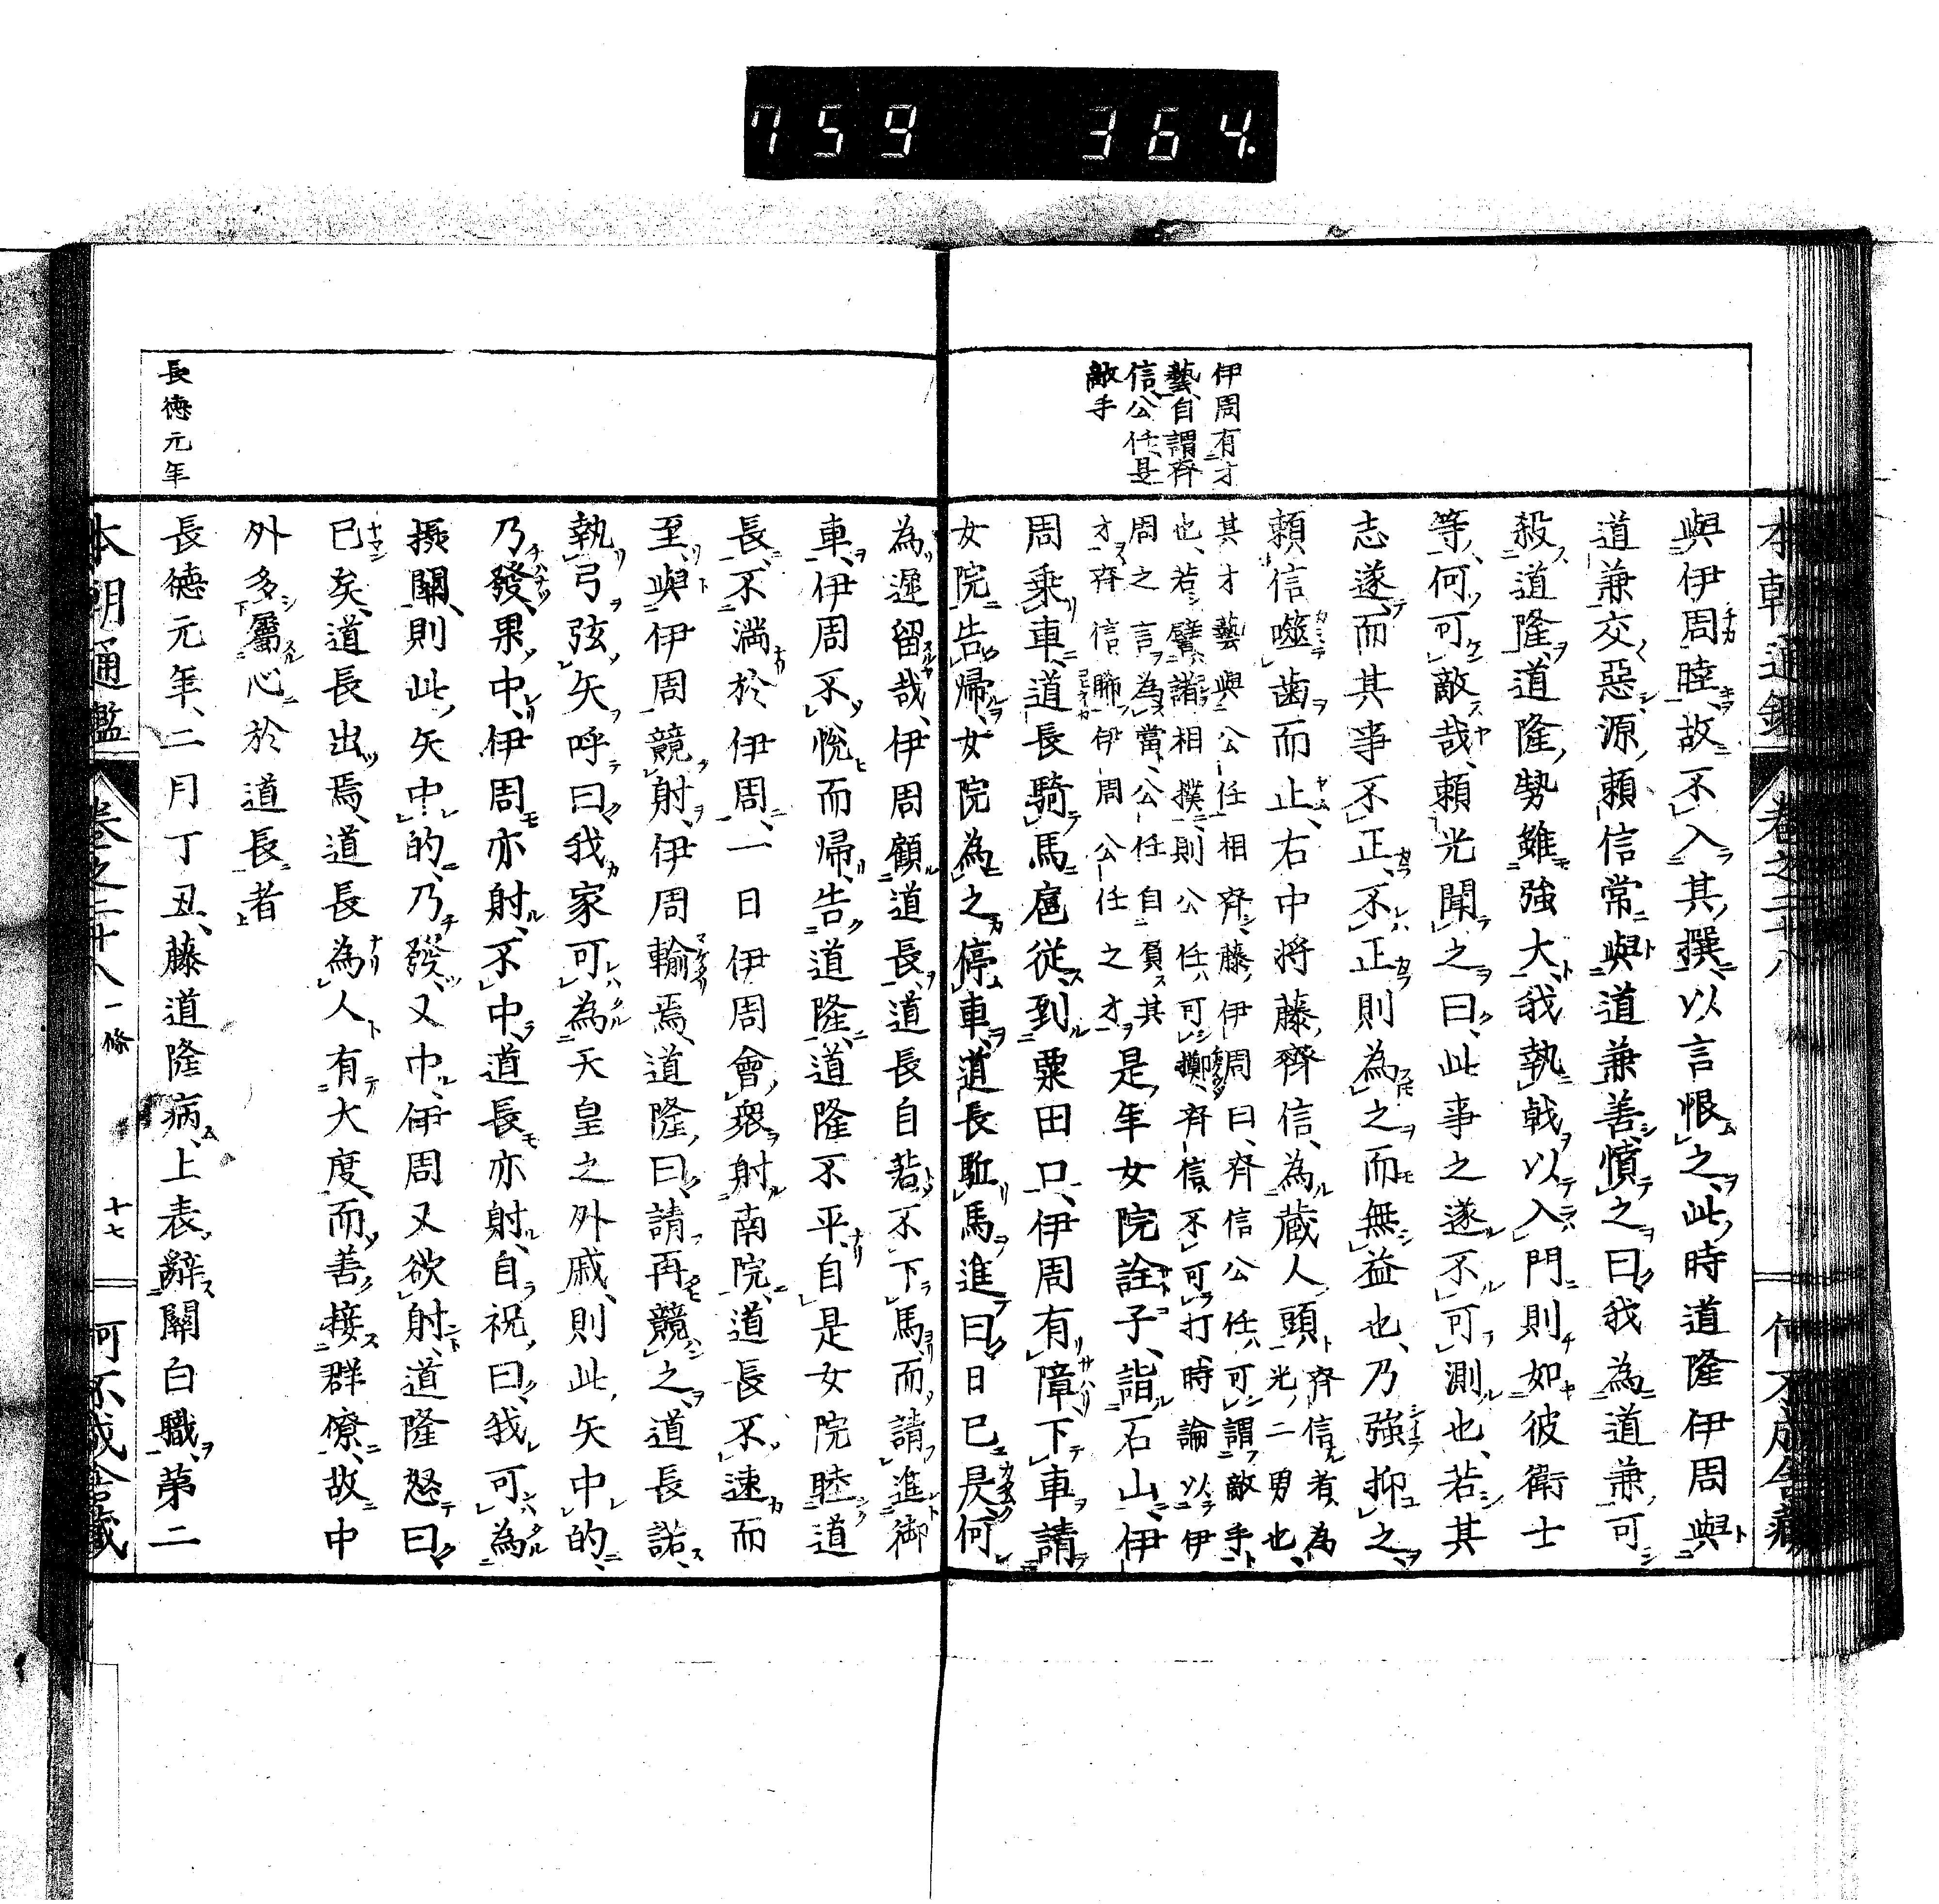 759 364.
本朝通鑑 卷之二十八 何不成舎藏
伊周有才
藝自謂齊
信公任是
敵手
與伊周睦、故不入其撰、以言恨之、此時道隆伊周與
道兼交惡、源頼信常與道兼善、憤之曰、我為道兼可
殺道隆、道隆勢雖強大、我執戟以入門則如彼衛士
等、何可敵哉、頼光聞之曰、此事之遂不可測也、若其
志遂、而其事不正、不正則為之而無益也、乃強抑之、
頼信噬歯而止、右中将藤齊信、為蔵人頭
齊信者、為
光二男也、
其才藝與公任相齊、藤伊周曰、齊信公任、可謂敵手
也、若譬諸相撲、則公任可擲齊信、不可打、時論以伊
周之言為當、公任自負其
才、齊信聯伊周公任之才
是年女院詮子、詣石山、伊
周乗車、道長騎馬扈従、到粟田口、伊周有障、下車請
女院告帰、女院為之停車、道長駈馬進曰、日已昃、何
為遲留哉、伊周顧道長、道長自若、不下馬、而請進御
車、伊周不悅而帰、告道隆、道隆不平、自是女院睦道
長、不満於伊周、一日伊周會衆射南院、道長不速而
至、與伊周競射、伊周輸焉、道隆曰、請再競之、道長諾、
執弓弦矢呼曰、我家可為天皇之外戚、則此矢中的、
乃發、果中、伊周亦射、不中、道長亦射、自祝曰、我可為
摂關、則此矢中的、乃發、又中、伊周又欲射、道隆怒曰、
已矣、道長出焉、道長為人有大度、而善接群僚、故中
外多屬心於道長者
長徳元年
長徳元年、二月丁丑、藤道隆病、上表辭關白職、第二
本朝通鑑 卷之二十八 一條 十七 何不成舎藏